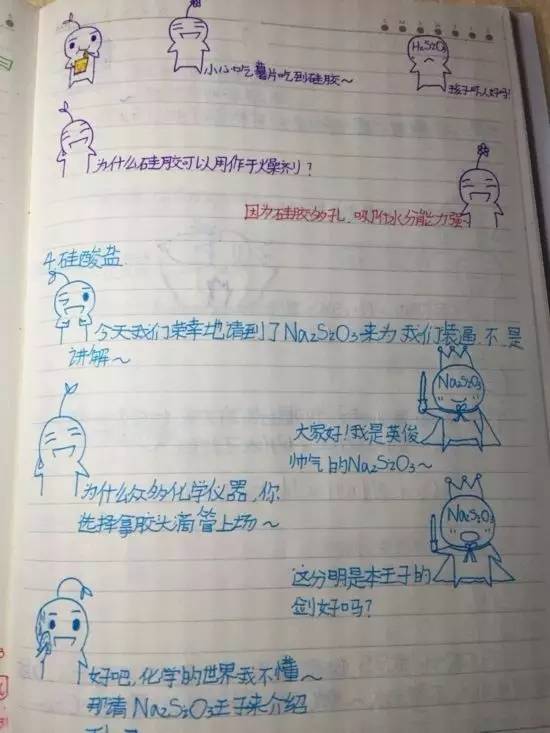 H₂SiO₃
小心吃薯片吃到硅胶~
孩子吓人好吗!
为什么硅胶可以用作干燥剂?
因为硅胶多孔,吸附水分能力强
4.硅酸盐
今天我们荣幸地请到了Na₂SiO₃来为我们装逼,不是
讲解~
Na₂SiO₃
大家好!我是英俊
帅气的Na₂SiO₃~
为什么众多化学仪器,你
选择拿胶头滴管上场~
Na₂SiO₃
这分明是本王子的
剑好吗?
好吧,化学的世界我不懂~
那请Na₂SiO₃王子来介绍